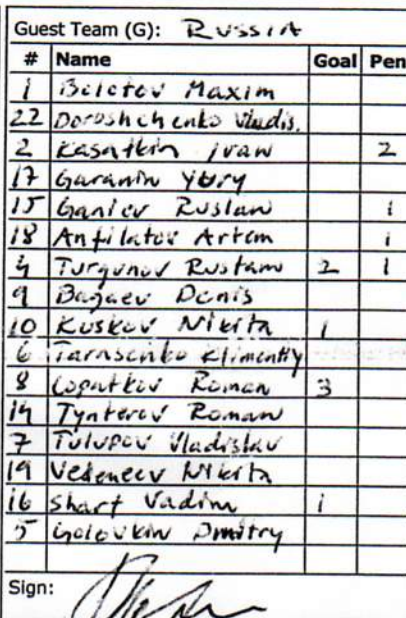 Guest Team (G): RUSSIA
# Name Goal Pen
1 Bolotov Maxim
22 Doroshchenko Vladis.
2 Kasatkin Ivan 2
17 Garanin Yury
15 Ganiev Ruslan 1
18 Anfilatov Artem 1
4 Turgunov Rustam 2 1
9 Bagaev Denis
10 Kuskov Nikita 1
6 Tarasenko Klimentiy
8 Lopatkov Roman 3
14 Tynterov Roman
7 Tulupov Vladislav
19 Vedeneev Nikita
16 Sharf Vadim 1
5 Golovkin Dmitry
Sign: